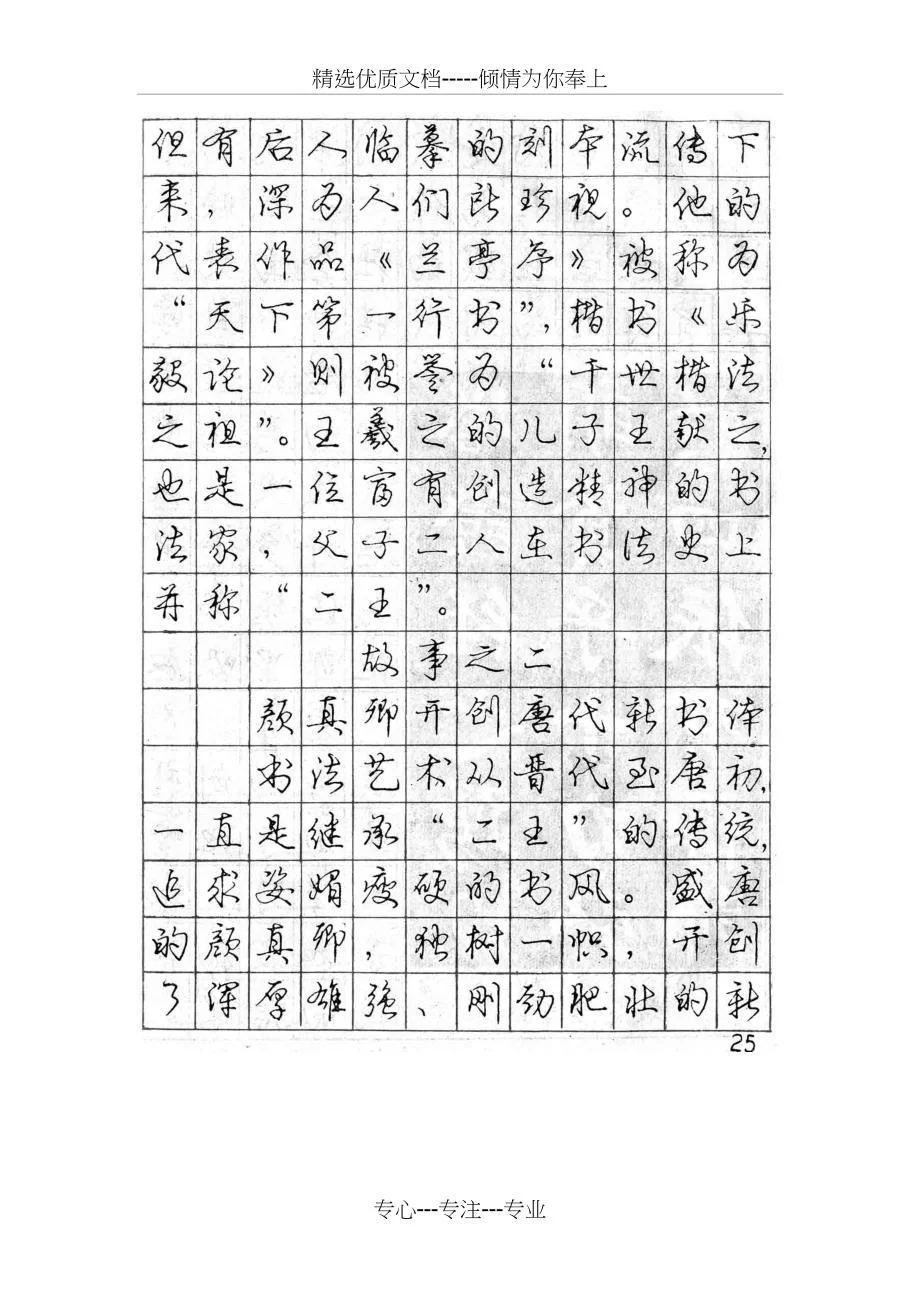 精选优质文档-----倾情为你奉上
但有后人临摹的刻本流传下
来，深为人们所珍视。他的
代表作品《兰亭序》被称为
“天下第一行书”，楷书《乐
毅论》则被誉为“千世楷法
之祖”。王羲之的儿子王献之，
也是一位富有创造精神的书
法家，父子二人在书法史上
并称“二王”。
故事之二
颜真卿开创唐代新书体
书法艺术从晋代至唐初，
一直是继承“二王”的传统，
追求姿媚瘦硬的书风。盛唐
的颜真卿，独树一帜，开创
了浑厚雄强、刚劲肥壮的新
25
专心---专注---专业